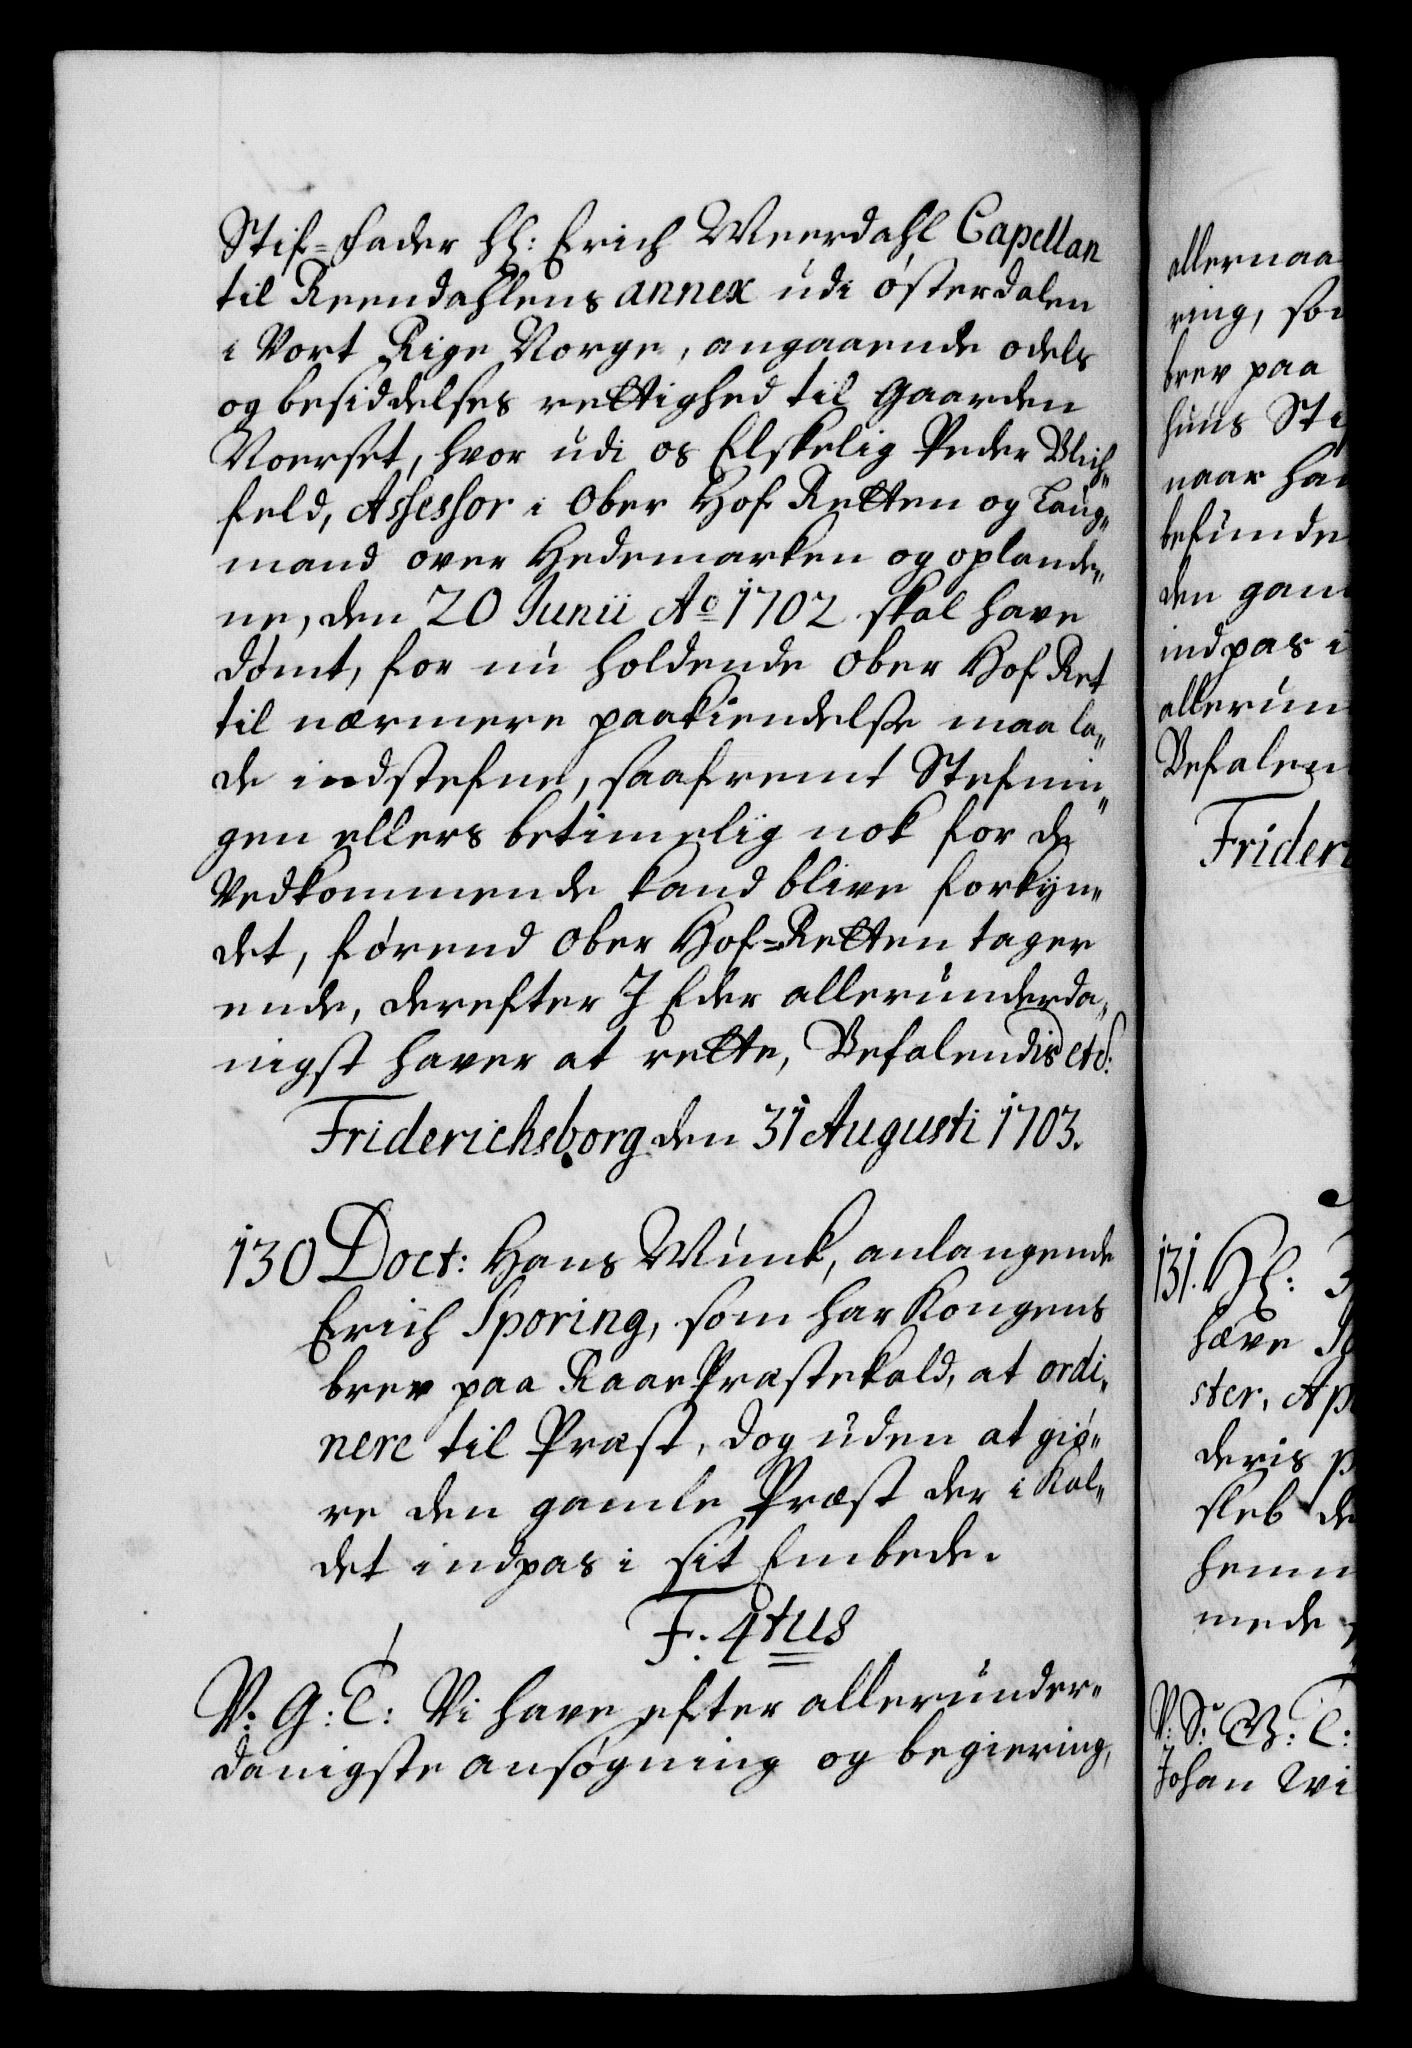 Stif=Fader Hr: Erich Meerdahl Capellan
til Reendahlens annex udi Østerdalen
i Vort Rige Norge, angaaende odels
og besiddelses rettighed til Gaarden
Noerset, hvor udi os Elskelig Peder Blich„
feld, Assessor i Ober Hof Retten og Laug„
mand over Hedemarken og oplande„
ne, den 20 Junii Ao 1702 skal have
dømt, for nu holdende Ober Hof Ret
til nærmere paakiendelse maa la„
de indstefne, saafremt Stefnin„
gen ellers betimelig nok for de
Vedkommende kand blive forkyn„
det, førend Ober Hof=Retten tager
ende, derefter I Eder allerunderda„
nigst haver at rette, Befalendis etc:
Friderichsborg den 31 Augusti 1703.
130 Doct: Hans Munk, anlangende
Erich Sporing, som har Kongens
brev paa Raae Præstekald, at ordi„
nere til Præst, dog uden at giø„
re den gamle Præst der i Kal„
det indpas i sit Embede.
F. 4tus
V: G: T: Vi have efter allerunder„
danigste ansøgning og begiering,
allernaa
ring, som
brev paa
huus Sti
naar han
befunde
den gam
indpas i
allerun
Befalen
Frider
131. Hr:
have
ster, Ap
deris p
sleb de
hemm
mede
V: S: G: T:
Johan Wi